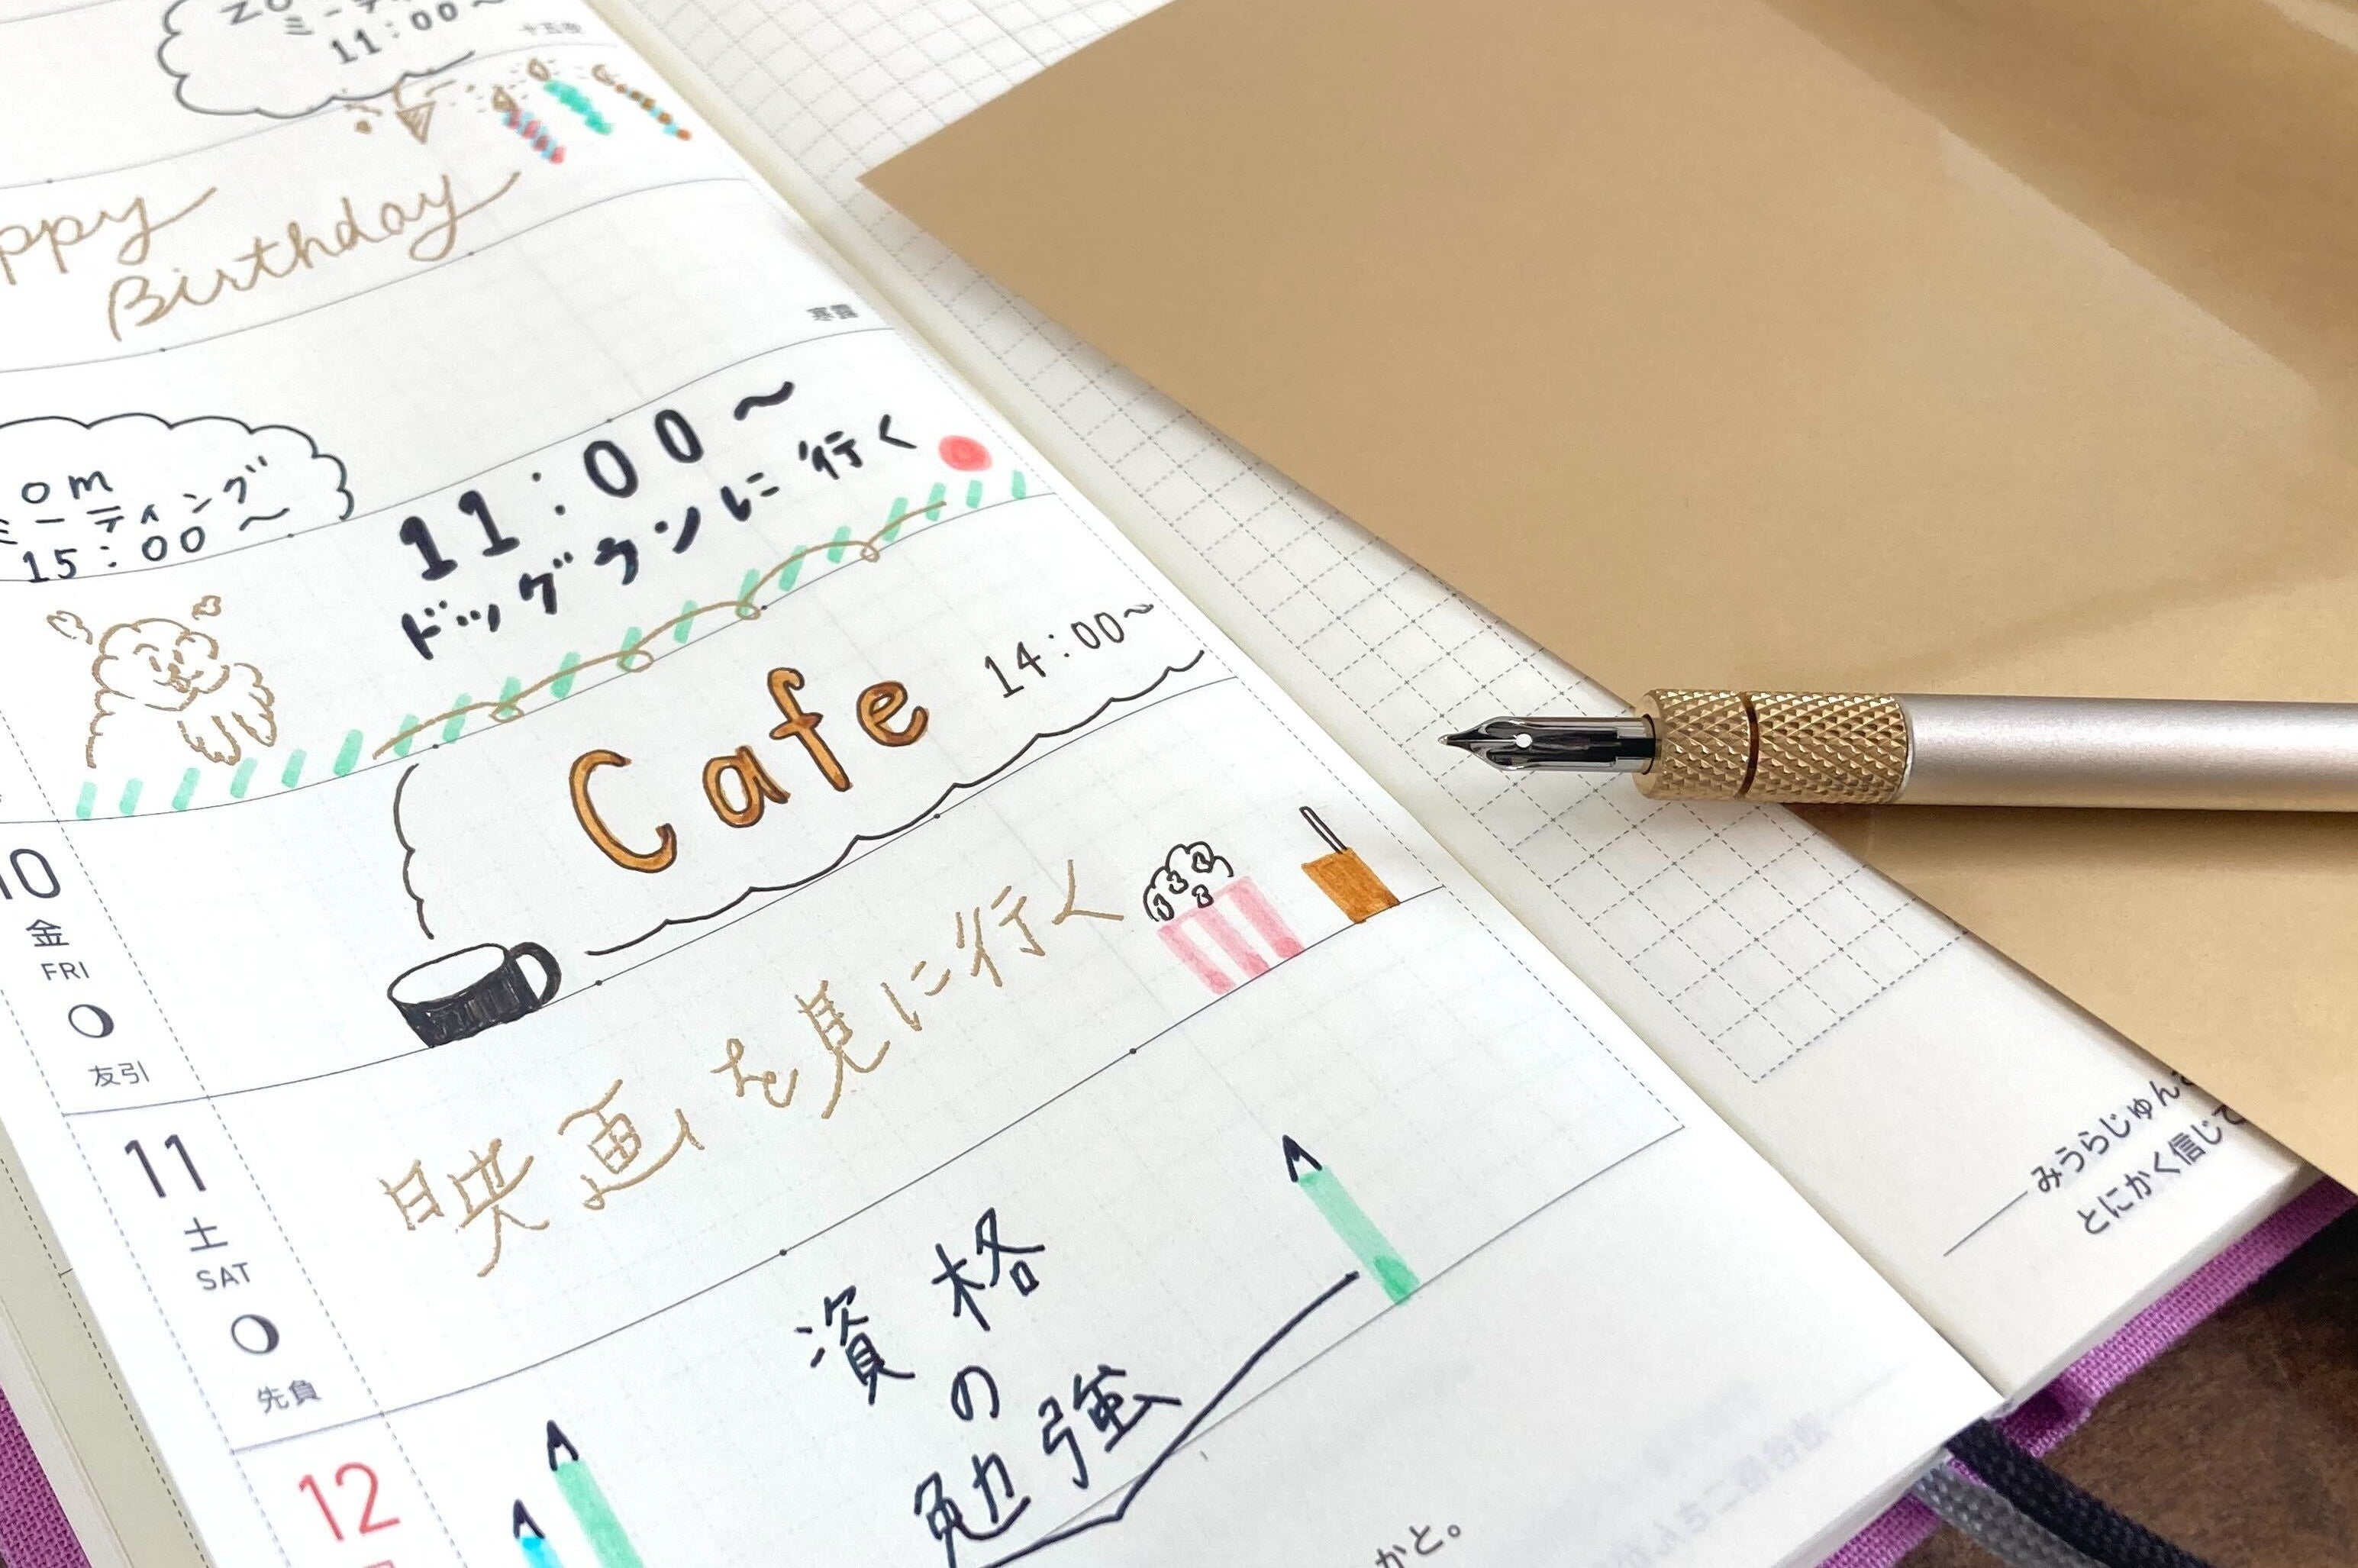 ミーティング
11:00~
ppy
Birthday
寒露
om
ミーティング
15:00~
11:00~
ドッグランに行く
Cafe
14:00~
10
金
FRI
友引
映画を見に行く
11
土
SAT
先負
資格
の
勉強
12
かと。
みうらじゅん
とにかく信じて